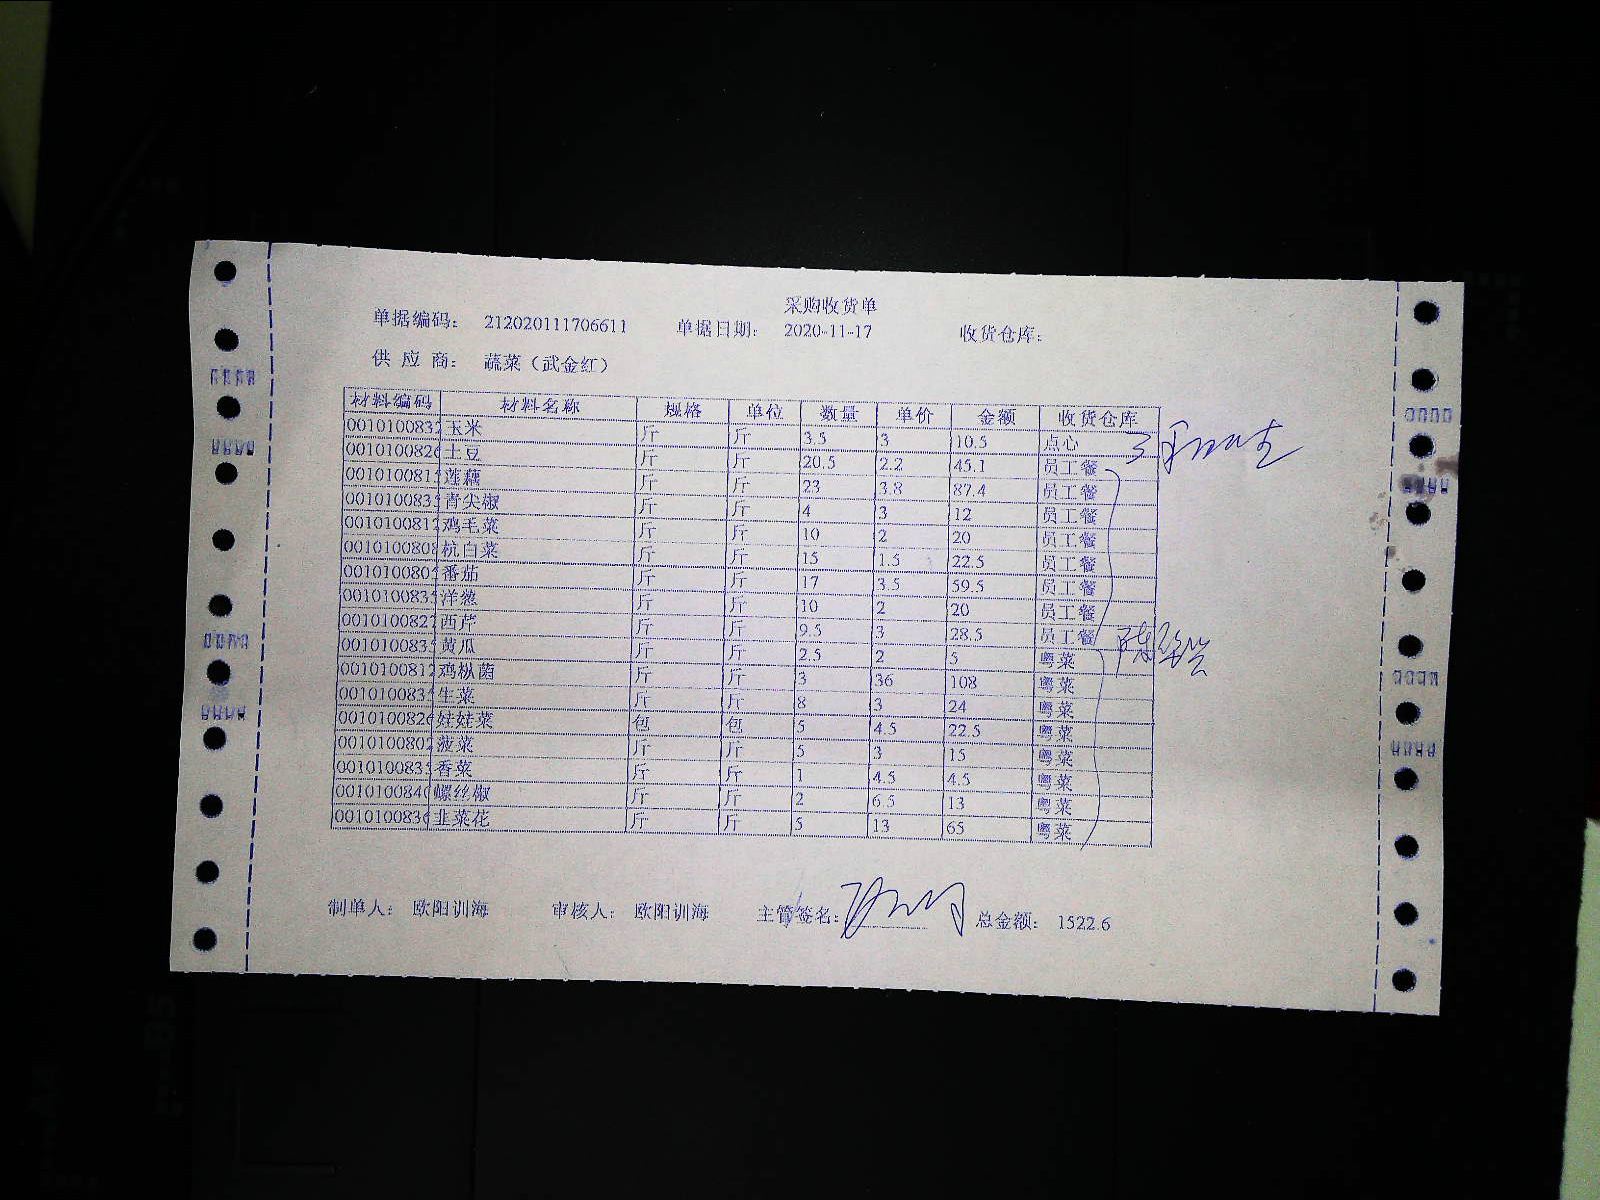 采购收货单
单据编码： 212020111706611 单据日期： 2020-11-17 收货仓库：
供 应 商： 蔬菜（武金红）
材料编码 材料名称 规格 单位 数量 单价 金额 收货仓库
001010083 玉米 斤 斤 3.5 3 10.5 点心
001010082 土豆 斤 斤 20.5 2.2 45.1 员工餐
001010081 莲藕 斤 斤 23 3.8 87.4 员工餐
001010083 青尖椒 斤 斤 4 3 12 员工餐
001010081 鸡毛菜 斤 斤 10 2 20 员工餐
001010080 杭白菜 斤 斤 15 1.5 22.5 员工餐
001010080 番茄 斤 斤 17 3.5 59.5 员工餐
001010083 洋葱 斤 斤 10 2 20 员工餐
001010082 西芹 斤 斤 9.5 3 28.5 员工餐
001010083 黄瓜 斤 斤 2.5 2 5 粤菜
001010081 鸡枞菌 斤 斤 3 36 108 粤菜
001010083 生菜 斤 斤 8 3 24 粤菜
001010082 娃娃菜 包 包 5 4.5 22.5 粤菜
001010080 菠菜 斤 斤 5 3 15 粤菜
001010083 香菜 斤 斤 1 4.5 4.5 粤菜
001010084 螺丝椒 斤 斤 2 6.5 13 粤菜
001010083 韭菜花 斤 斤 5 13 65 粤菜
制单人： 欧阳训海 审核人： 欧阳训海 主管签名： 总金额： 1522.6